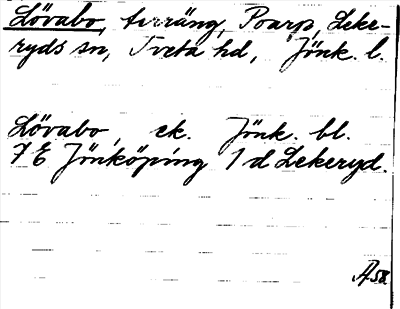 Lövabo, terräng, Poarp, Leke-
ryds sn, Tveta hd, Jönk. l.
Lövabo, ek. Jönk. bl.
7 E Jönköping 1 d Lekeryd.
A58